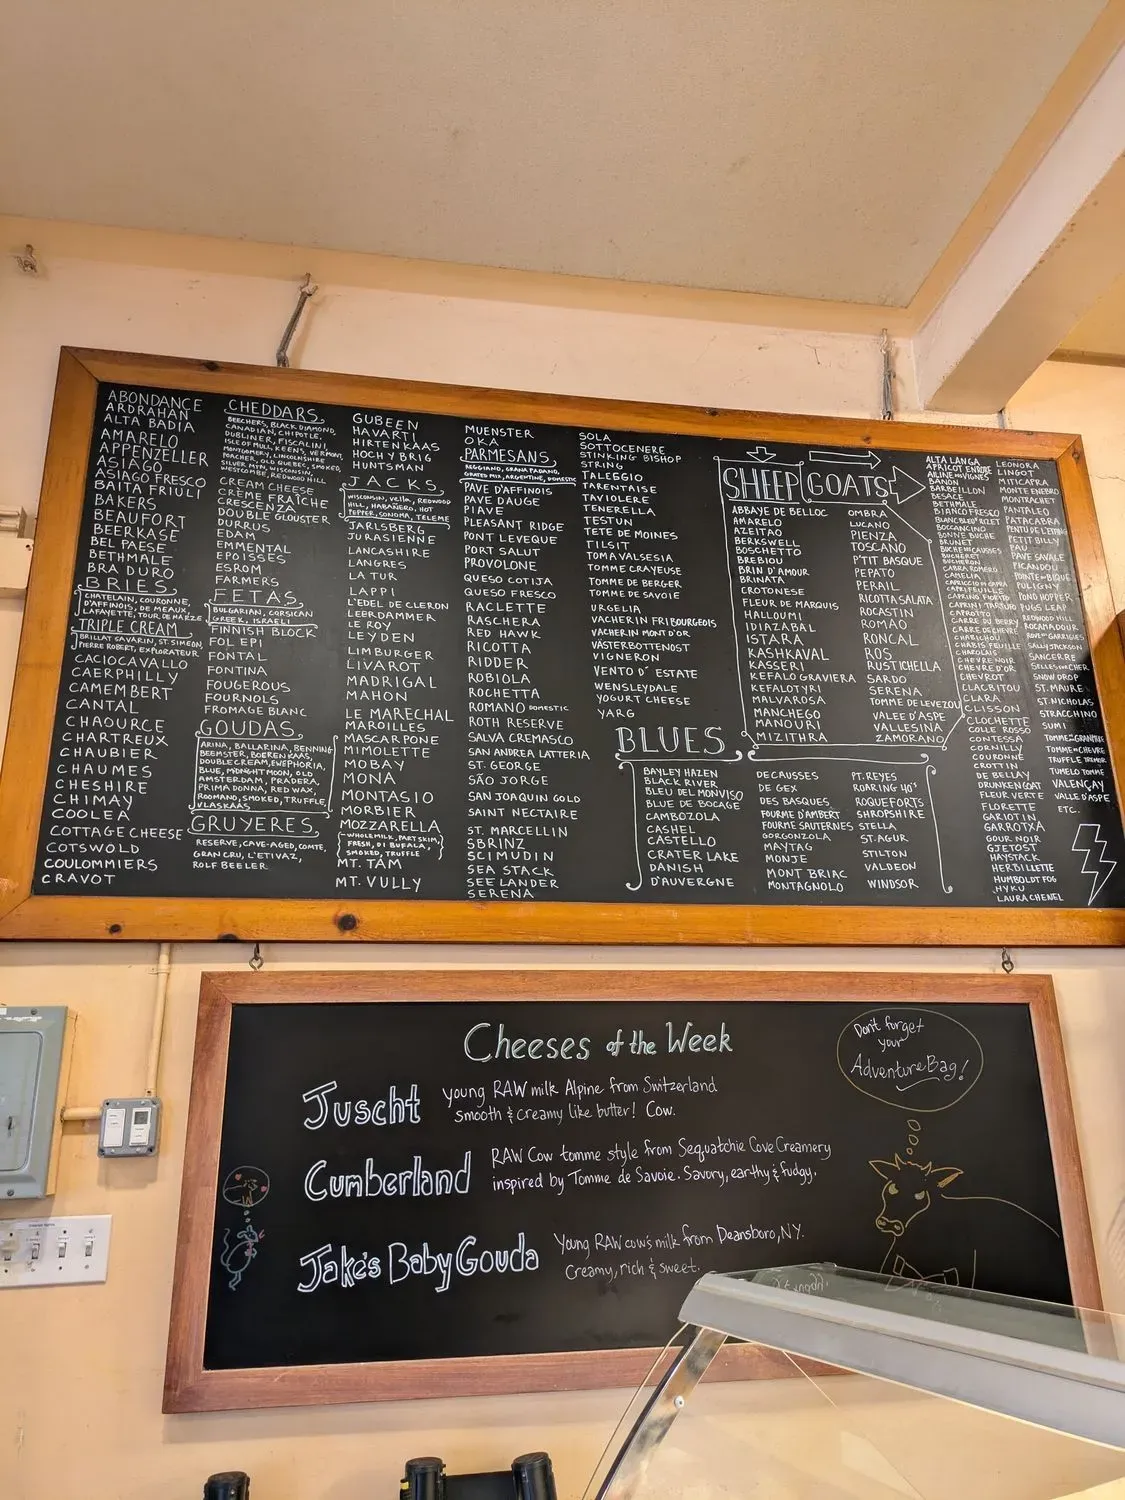 ABONDANCE
ARDRAHAN
ALTA BADIA
AMARELO
APPENZELLER
ASIAGO
ASIAGO FRESCO
BAITA FRIULI
BAKERS
BEAUFORT
BEERKASE
BEL PAESE
BETHMALE
BRA DURO
BRIES
CHATELAIN, COURONNE,
D'AFFINOIS, DE MEAUX,
LAFAYETTE, TOUR DE MARZE
TRIPLE CREAM
BRILLAT SAVARIN, ST SIMEON,
PIERRE ROBERT, EXPLORATEUR
CACIOCAVALLO
CAERPHILLY
CAMEMBERT
CANTAL
CHAOURCE
CHARTREUX
CHAUBIER
CHAUMES
CHESHIRE
CHIMAY
COOLEA
COTTAGE CHEESE
COTSWOLD
COULOMMIERS
CRAVOT
CHEDDARS
BEECHERS, BLACK DIAMOND,
CANADIAN, CHIPOTLE,
DUBLINER, FISCALINI
ISLE OF MULL, KEENS, VERMONT,
MONTGOMERY, LINCOLNSHIRE
POACHER, OLD QUEBEC, SMOKED,
SILVER MTN, WISCONSIN,
WESTCOMBE, REDWOOD HILL
CREAM CHEESE
CRÈME FRAÎCHE
CRESCENZA
DOUBLE GLOUSTER
DURRUS
EDAM
EMMENTAL
EPOISSES
ESROM
FARMERS
FETAS
BULGARIAN, CORSICAN
GREEK, ISRAELI
FINNISH BLOCK
FOL EPI
FONTAL
FONTINA
FOUGEROUS
FOURNOLS
FROMAGE BLANC
GOUDAS
ARINA, BALLARINA, BENNING
BEEMSTER, BOERENKAAS,
DOUBLE CREAM, EWEPHORIA,
BLUE, MIDNIGHT MOON, OLD
AMSTERDAM, PRADERA,
PRIMA DONNA, RED WAX,
ROOMANO, SMOKED, TRUFFLE,
VLASKAAS
GRUYERES
RESERVE, CAVE-AGED, COMTE,
GRAN CRU, L'ETIVAZ,
ROLF BEELER
GUBEEN
HAVARTI
HIRTENKAAS
HOCH Y BRIG
HUNTSMAN
JACKS
WISCONSIN, Vella, REDWOOD
HILL, HABAÑERO, HOT
PEPPER, SONOMA, TELEME
JARLSBERG
JURASIENNE
LANCASHIRE
LANGRES
LA TUR
LAPPI
L'EDEL DE CLERON
LEERDAMMER
LE ROY
LEYDEN
LIMBURGER
LIVAROT
MADRIGAL
MAHON
LE MARECHAL
MAROILLES
MASCARPONE
MIMOLETTE
MOBAY
MONA
MONTASIO
MORBIER
MOZZARELLA
WHOLE MILK, PART SKIM,
FRESH, DI BUFALA,
SMOKED, TRUFFLE
MT. TAM
MT. VULLY
MUENSTER
OKA
PARMESANS
REGGIANO, GRANA PADANO,
GRATED MIX, ARGENTINE, DOMESTIC
PAVE D'AFFINOIS
PAVE DAUGE
PIAVE
PLEASANT RIDGE
PONT LEVEQUE
PORT SALUT
PROVOLONE
QUESO COTIJA
QUESO FRESCO
RACLETTE
RASCHERA
RED HAWK
RICOTTA
RIDDER
ROBIOLA
ROCHETTA
ROMANO DOMESTIC
ROTH RESERVE
SALVA CREMASCO
SAN ANDREA LATTERIA
ST. GEORGE
SÃO JORGE
SAN JOAQUIN GOLD
SAINT NECTAIRE
ST. MARCELLIN
SBRINZ
SCIMUDIN
SEA STACK
SEE LANDER
SERENA
SOLA
SOTTOCENERE
STINKING BISHOP
STRING
TALEGGIO
TARENTAISE
TAVIOLERE
TENERELLA
TESTUN
TETE DE MOINES
TILSIT
TOMA VALSESIA
TOMME CRAYEUSE
TOMME DE BERGER
TOMME DE SAVOIE
URGELIA
VACHERIN FRIBOURGEOIS
VACHERIN MONT D'OR
VÄSTERBOTTENOST
VIGNERON
VENTO D' ESTATE
WENSLEYDALE
YOGURT CHEESE
YARG
BLUES
BAYLEY HAZEN
BLACK RIVER
BLEU DEL MONVISO
BLUE DE BOCAGE
CAMBOZOLA
CASHEL
CASTELLO
CRATER LAKE
DANISH
D'AUVERGNE
DECAUSSES
DE GEX
DES BASQUES
FOURME D'AMBERT
FOURMÉ SAUTERNES
GORGONZOLA
MAYTAG
MONJE
MONT BRIAC
MONTAGNOLO
PT. REYES
ROARING 40'S
ROQUEFORTS
SHROPSHIRE
STELLA
ST. AGUR
STILTON
VALDEON
WINDSOR
SHEEP
GOATS
ABBAYE DE BELLOC
AMARELO
AZEITAO
BERKSWELL
BOSCHETTO
BREBIOU
BRIN D'AMOUR
BRINATA
CROTONESE
FLEUR DE MARQUIS
HALLOUMI
IDIAZABAL
ISTARA
KASHKAVAL
KASSERI
KEFALO GRAVIERA
KEFALOTYRI
MALVAROSA
MANCHEGO
MANOURI
MIZITHRA
OMBRA
LUCANO
PIENZA
TOSCANO
P'TIT BASQUE
PEPATO
PERAIL
RICOTTA SALATA
ROCASTIN
ROMAO
RONCAL
ROS
RUSTICHELLA
SARDO
SERENA
TOMME DE LEVEZOU
VALLEE D'ASPE
VALLESINA
ZAMORANO
ALTA LANGA
BANON
BARBEILLON
BESACE
BETHMALE
BIANCO FRESCO
BOCCANCINO
BONNE BUCHE
BRUNET
BUCHERET
BUCHERON
CABRA ROMERO
CAMELIA
CAPRIFEUILLE
CAPROTTO
CARRE DU BERRY
CARRE DE CHEVRE
CHABICHOU
CHABIS FEUILLE
CHAROLAIS
CHEVRE NOIR
CHEVRE D'OR
CHEVROT
CLACBITOU
CLARA
CLISSON
CLOCHETTE
COLLE ROSSO
CONTESSA
CORNILLY
COURONNE
CROTTIN
DE BELLAY
DRUNKEN GOAT
FLEUR VERTE
FLORETTE
GARIOTIN
GARROTXA
GOUR NOIR
GJETOST
HAYSTACK
HERBILLETTE
HUMBOLDT FOG
HYKU
LAURA CHENEL
LEONORA
LINGOT
MITICAPRA
MONTE ENEBRO
MONTRACHET
PANTALEO
PATACABRA
PETIT BILLY
PAU
PAVE SAVALE
PICANDOU
POND HOPPER
PUGS LEAP
REDWOOD HILL
ROCAMADOUR
SALLY JACKSON
SANCERRE
SELLES SUR CHER
SNOW DROP
ST. MAURE
ST. NICHOLAS
STRACCHINO
SUMI
TOMME DE CHEVRE
TRUFFLE TREMOR
TUMELO TOMME
VALENÇAY
VALLE D'ASPE
ETC.
Cheeses of the Week
Juscht young RAW milk Alpine from Switzerland
smooth & creamy like butter! Cow.
Cumberland RAW Cow tomme style from Sequatchie Cove Creamery
inspired by Tomme de Savoie. Savory, earthy & fudgy.
Jake's Baby Gouda Young RAW cow's milk from Deansboro, NY.
Creamy, rich & sweet.
Don't forget
your
Adventure Bag!